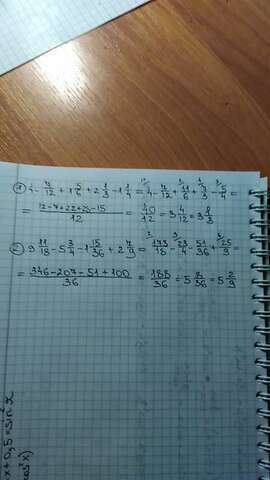 ① 1 - 7/12 + 1 5/6 + 2 1/3 - 1 1/4 = 1 - 7/12 + 11/6 + 7/3 - 5/4 =
= (12-7+22+28-15)/12 = 40/12 = 3 4/12 = 3 1/3
② 9 11/18 - 5 3/4 - 1 15/36 + 2 7/9 = 173/18 - 23/4 - 51/36 + 25/9 =
= (346-207-51+100)/36 = 188/36 = 5 8/36 = 5 2/9
x+0,5=sin x